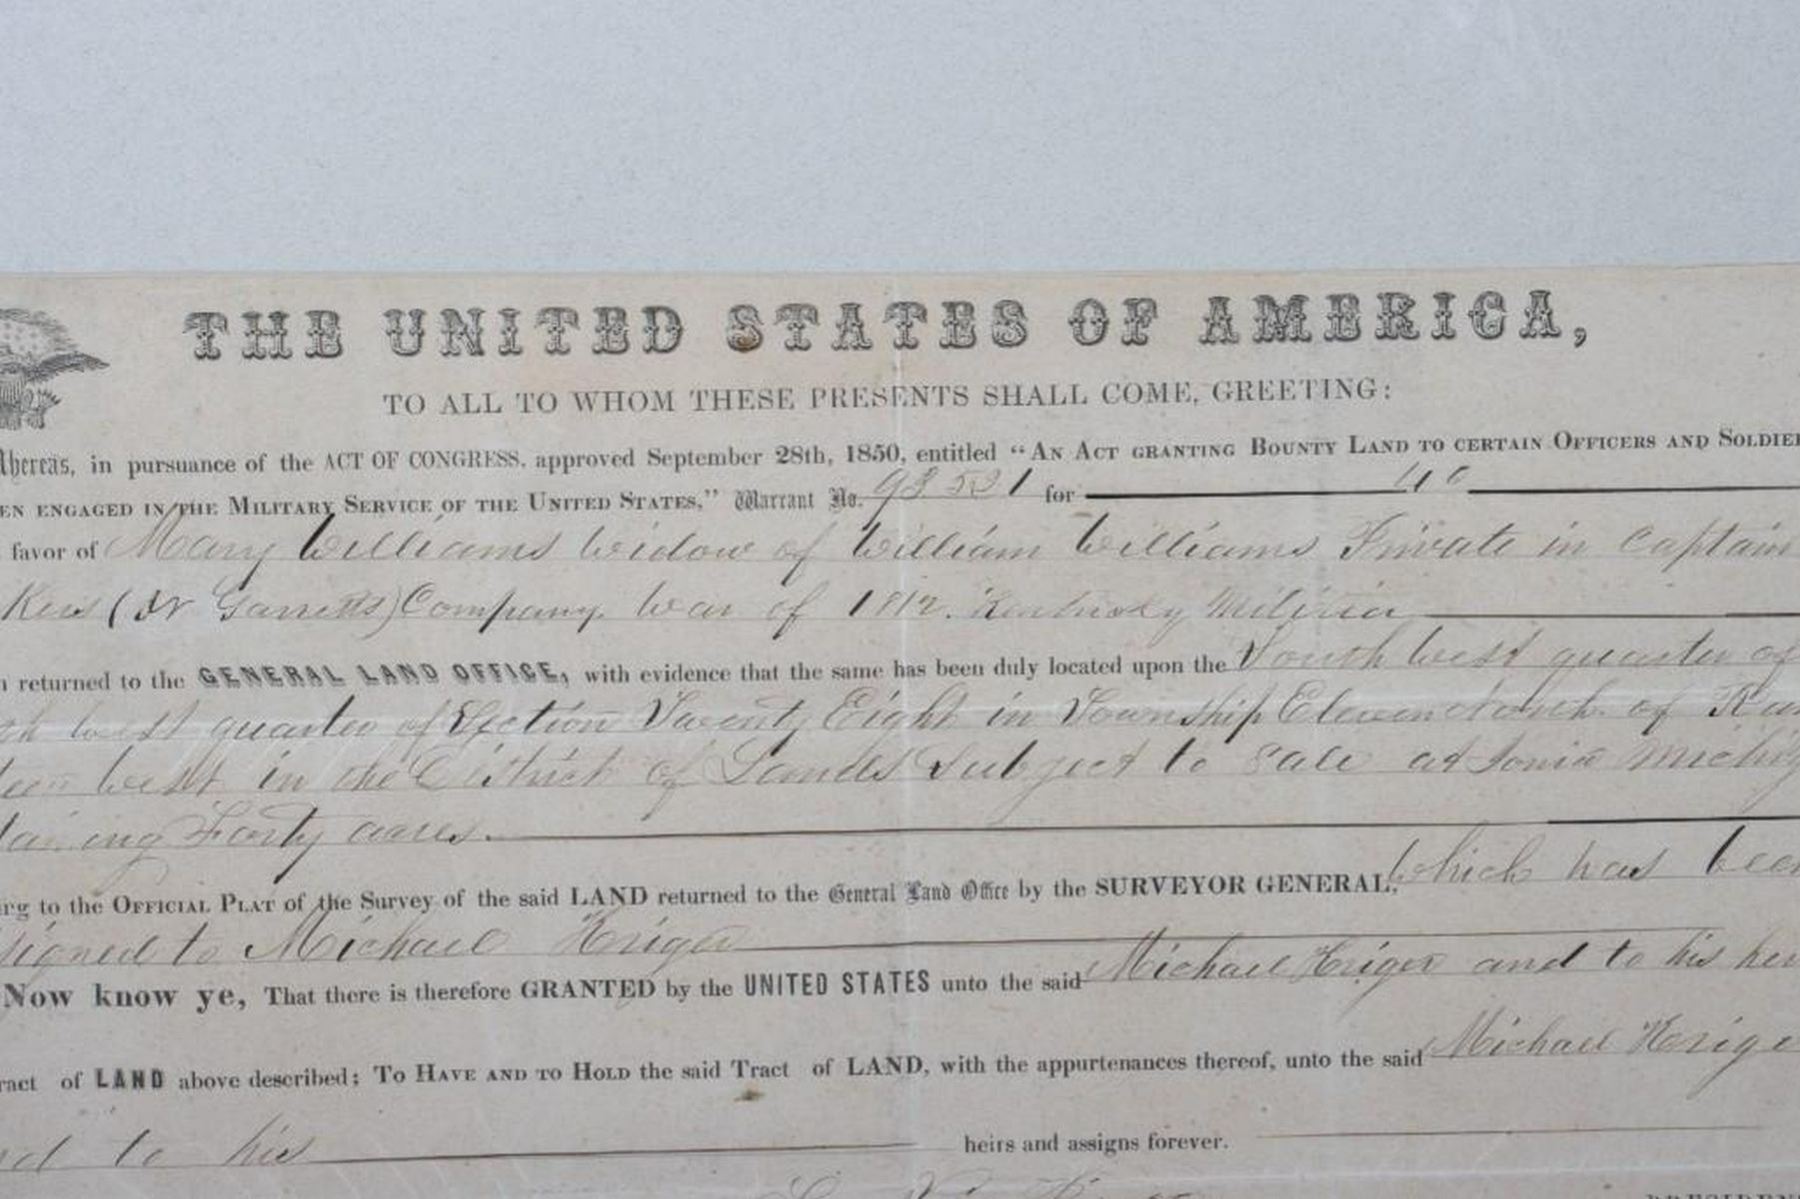 THE UNITED STATES OF AMERICA,
TO ALL TO WHOM THESE PRESENTS SHALL COME, GREETING:
Whereas, in pursuance of the ACT OF CONGRESS, approved September 28th, 1850, entitled "AN ACT GRANTING BOUNTY LAND TO CERTAIN OFFICERS AND SOLDIER
EN ENGAGED IN THE MILITARY SERVICE OF THE UNITED STATES," Warrant No. for 40
favor of Mary Williams Widow of William Williams Private in Captain
Company War of 1812. Kentucky Militia
n returned to the GENERAL LAND OFFICE, with evidence that the same has been duly located upon the South West quarter of
th West quarter of Section Twenty Eight in Township Eleven North of Ran
teen West in the District of Lands Subject to Sale at Ionia Michig
taining Forty acres.
rg to the OFFICIAL PLAT of the Survey of the said LAND returned to the General Land Office by the SURVEYOR GENERAL, Which has been
signed to Michael Kriger
Now know ye, That there is therefore GRANTED by the UNITED STATES unto the said Michael Kriger and to his hei
ract of LAND above described; TO HAVE AND TO HOLD the said Tract of LAND, with the appurtenances thereof, unto the said Michael Krige
nd to his heirs and assigns forever.
PRESIDENT